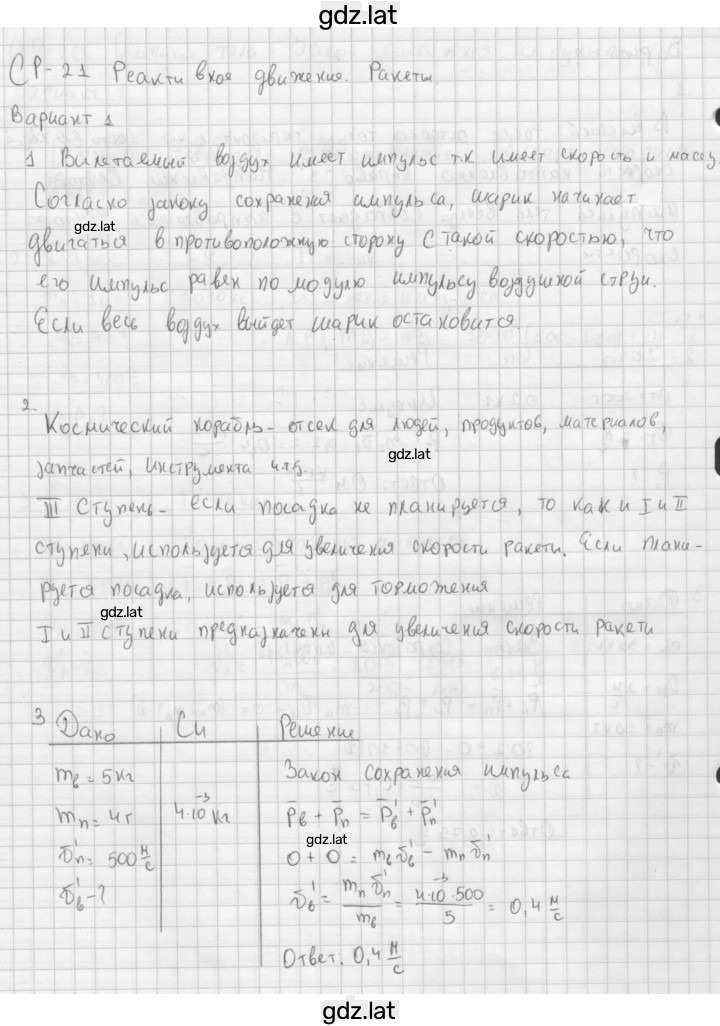 gdz.lat
СР-21 Реактивное движение. Ракеты.
Вариант 1
1 Вылетаемый воздух имеет импульс т.к имеет скорость и массу.
Согласно закону сохранения импульса, шарик начинает
gdz.lat
двигаться в противоположную сторону с такой скоростью, что
его импульс равен по модулю импульсу воздушной струи.
Если весь воздух выйдет шарик остановится.
2.
Космический корабль - отсек для людей, продуктов, материалов,
gdz.lat
запчастей, инструмента и т.д.
III Ступень - если посадка не планируется, то как и I и II
ступени, используется для увеличения скорости ракеты. Если плани-
руется посадка, используется для торможения
gdz.lat
I и II ступени предназначены для увеличения скорости ракеты
3 Дано Си Решение
mв = 5 кг Закон сохранения импульса
mп = 4 г 4·10⁻³ кг P̄в + P̄п = P̄в' + P̄п'
gdz.lat
υ̅п' = 500 м/с 0 + 0 = mв υ̅в' - mп υ̅п'
υ̅в' - ? υ̅в' = mп υ̅п' / mв = 4·10⁻³·500 / 5 = 0,4 м/с
Ответ. 0,4 м/с
gdz.lat